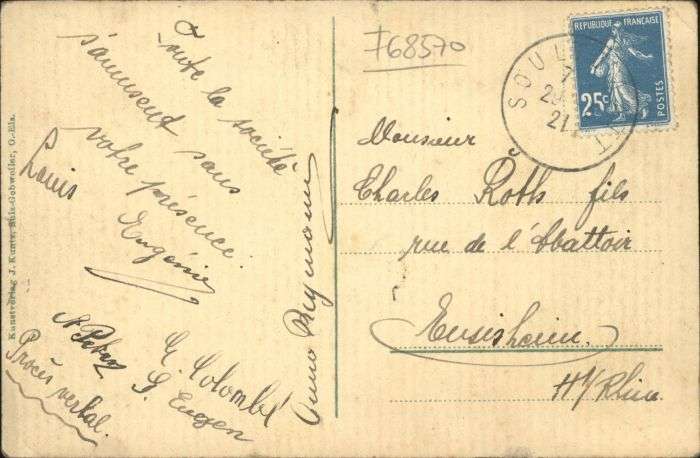 Toute la société
s'amusent sans
votre présence.
Eugénie
Louis
Anna Reymann
A Peter
G. Colombé
S. Eugen
Procès verbal.
Kunstverlag J. Kuntz, Sulz-Gebweiler, O.-Els.
768570
SOUL
21
RÉPUBLIQUE FRANÇAISE
25c
POSTES
Monsieur
Charles Roth fils
rue de l'Abattoir
Ensisheim.
Ht/Rhin.